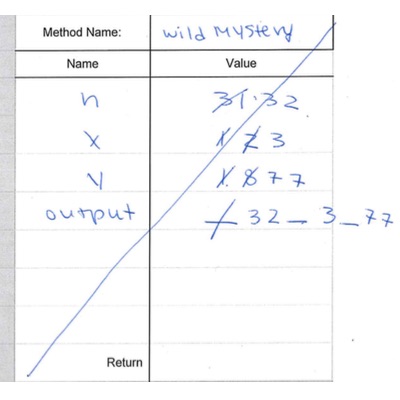 Method Name: wild Mystery
Name Value
n 31 32
x 1 2 3
y 1 8 77
output 32 _ 3 _ 77
Return